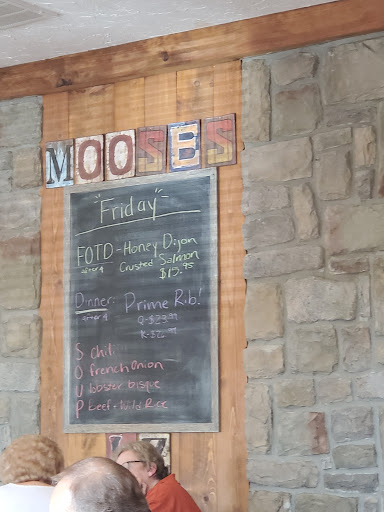 MOOSES
"Friday"
FOTD - Honey Dijon
after 4 Crusted Salmon
$15.95
Dinner: Prime Rib!
after 4
S chili
O french onion
U lobster bisque
P Beef + Wild Rice